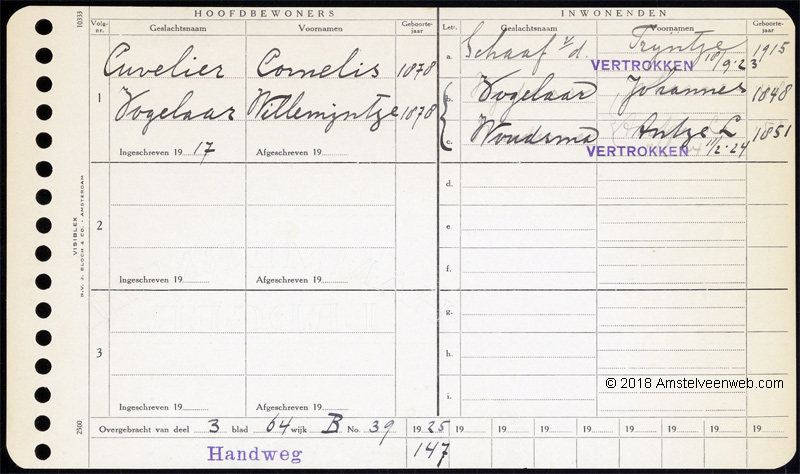 HOOFDBEWONERS
INWONENDEN
10333
Volg-nr. Geslachtsnaam Voornamen Geboorte-jaar
Letr. Geslachtsnaam Voornamen Geboorte-jaar
1 Cuvelier Cornelis 1878
Vogelaar Willemijntje 1878
Ingeschreven 19 17 Afgeschreven 19
a. Schaaf v/d. Tryntje 1915
VERTROKKEN 10/9-23
b. Vogelaar Johannes 1848
c. Woudsma Antje L 1851
VERTROKKEN 11/2-24
2
Ingeschreven 19 Afgeschreven 19
d.
e.
f.
3
Ingeschreven 19 Afgeschreven 19
g.
h.
i.
VISIBLEX
N.V. J. BLOCH & CO. - AMSTERDAM
2500
© 2018 Amstelveenweb.com
Overgebracht van deel 3 blad 64 wijk B No. 39 1925 19 19 19 19 19 19 19 19
Handweg 147